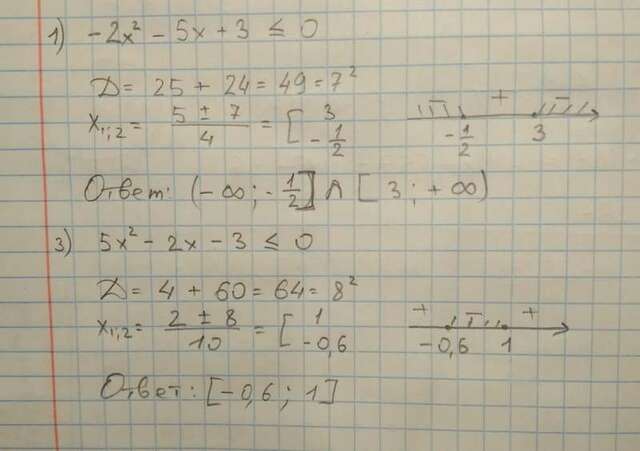 1) -2x² - 5x + 3 ≤ 0
D = 25 + 24 = 49 = 7²
x₁;₂ = (5 ± 7)/4 = [ 3 ; -1/2
- + -
-1/2 3
Ответ: (-∞; -1/2] Λ [3; +∞)
3) 5x² - 2x - 3 ≤ 0
D = 4 + 60 = 64 = 8²
x₁;₂ = (2 ± 8)/10 = [ 1 ; -0,6
+ - +
-0,6 1
Ответ: [-0,6; 1]